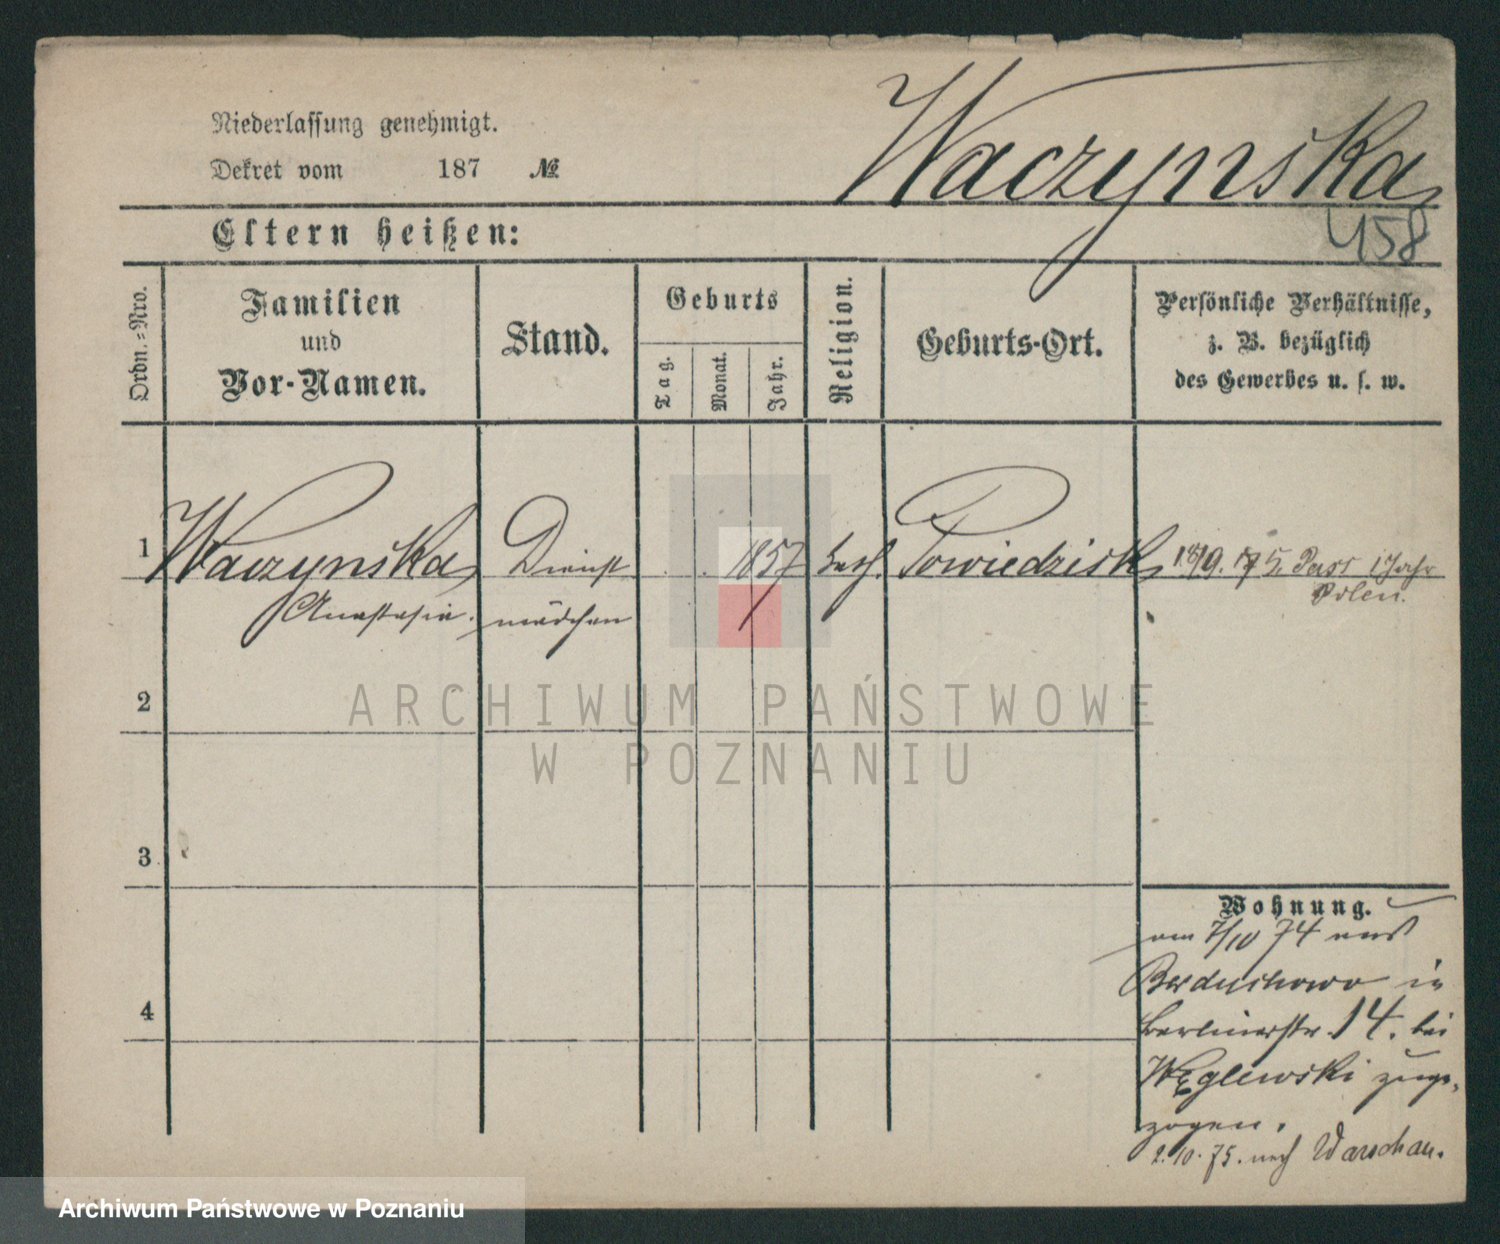 Waczynska
Niederlassung genehmigt.
Dekret vom 187 №
458
Eltern heißen:
Ordn.=Nro.
Familien
und
Vor-Namen.
Stand.
Geburts
Tag.
Monat.
Jahr.
Religion.
Geburts-Ort.
Persönliche Verhältnisse,
z. B. bezüglich
des Gewerbes u. s. w.
1 Waczynska Dienst 1857 kath. Powiedzisk 18/9. 75. Pass 1 Jahr
Anastasia. mädchen Polen.
2
ARCHIWUM PAŃSTWOWE
W POZNANIU
3
Wohnung.
am 7/10 74 aus
in
4
Berlinerstr. 14. bei
Węglewski zuge-
zogen.
2.10.75. nach Warschau.
Archiwum Państwowe w Poznaniu